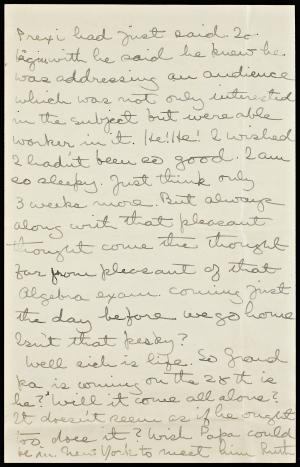 Prexi had just said. To
begin with he said he knew he
was addressing an audience
which was not only interested
in the subject but were able
worker in it. He! He! I wished
I hadn't been so good. I am
so sleepy. Just think only
3 weeks more. But always
along with that pleasant
thought come the thought
far from pleasant of that
Algebra exam. coming just
the day before we go home
Isn't that pesky?
Well sich is life. So Grand
pa is coming on the 28th is
he? Will it come all alone?
It doesn't seem as if he ought
too, does it? Wish Papa could
be in New York to meet him. Ruth